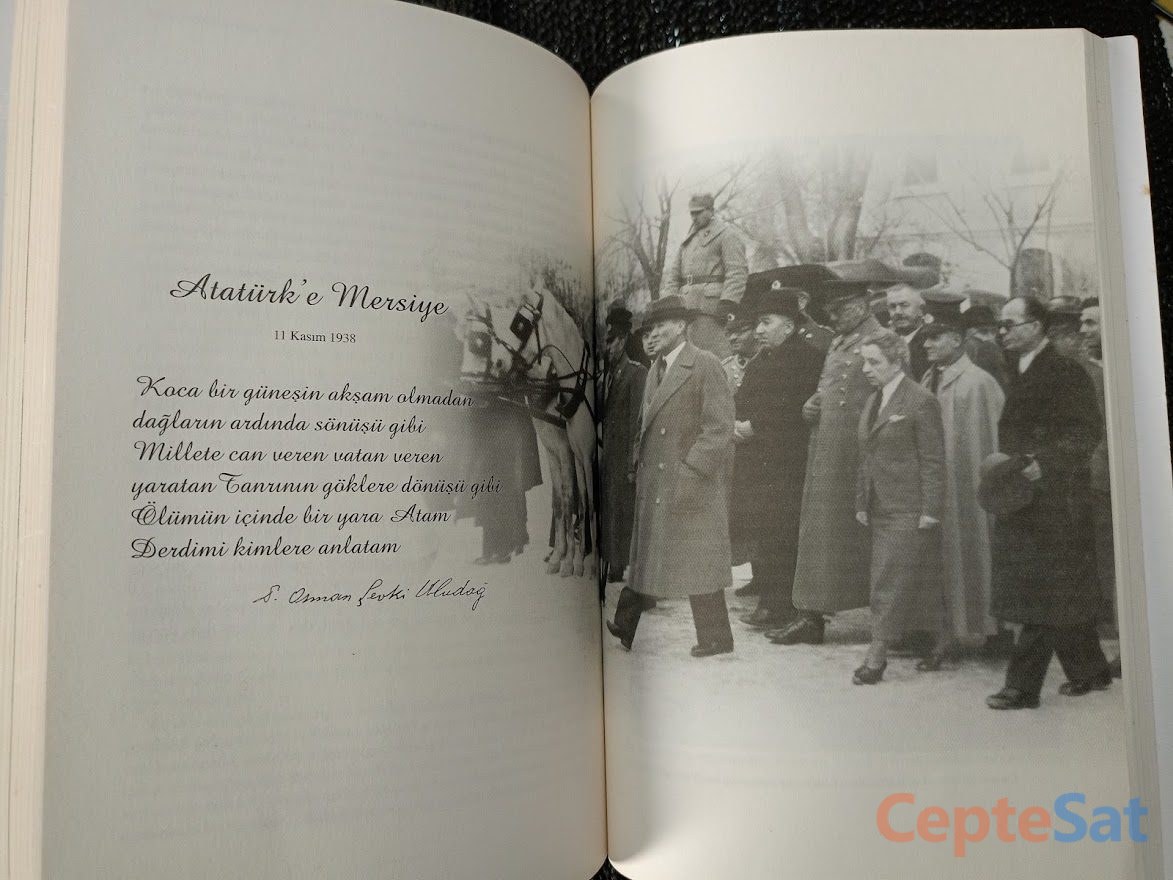 Atatürk'e Mersiye
11 Kasım 1938
Koca bir güneşin akşam olmadan
dağların ardında sönüşü gibi
Millete can veren vatan veren
yaratan Tanrının göklere dönüşü gibi
Ölümün içinde bir yara Atam
Derdimi kimlere anlatam
S. Osman Şevki Uludağ
CepteSat